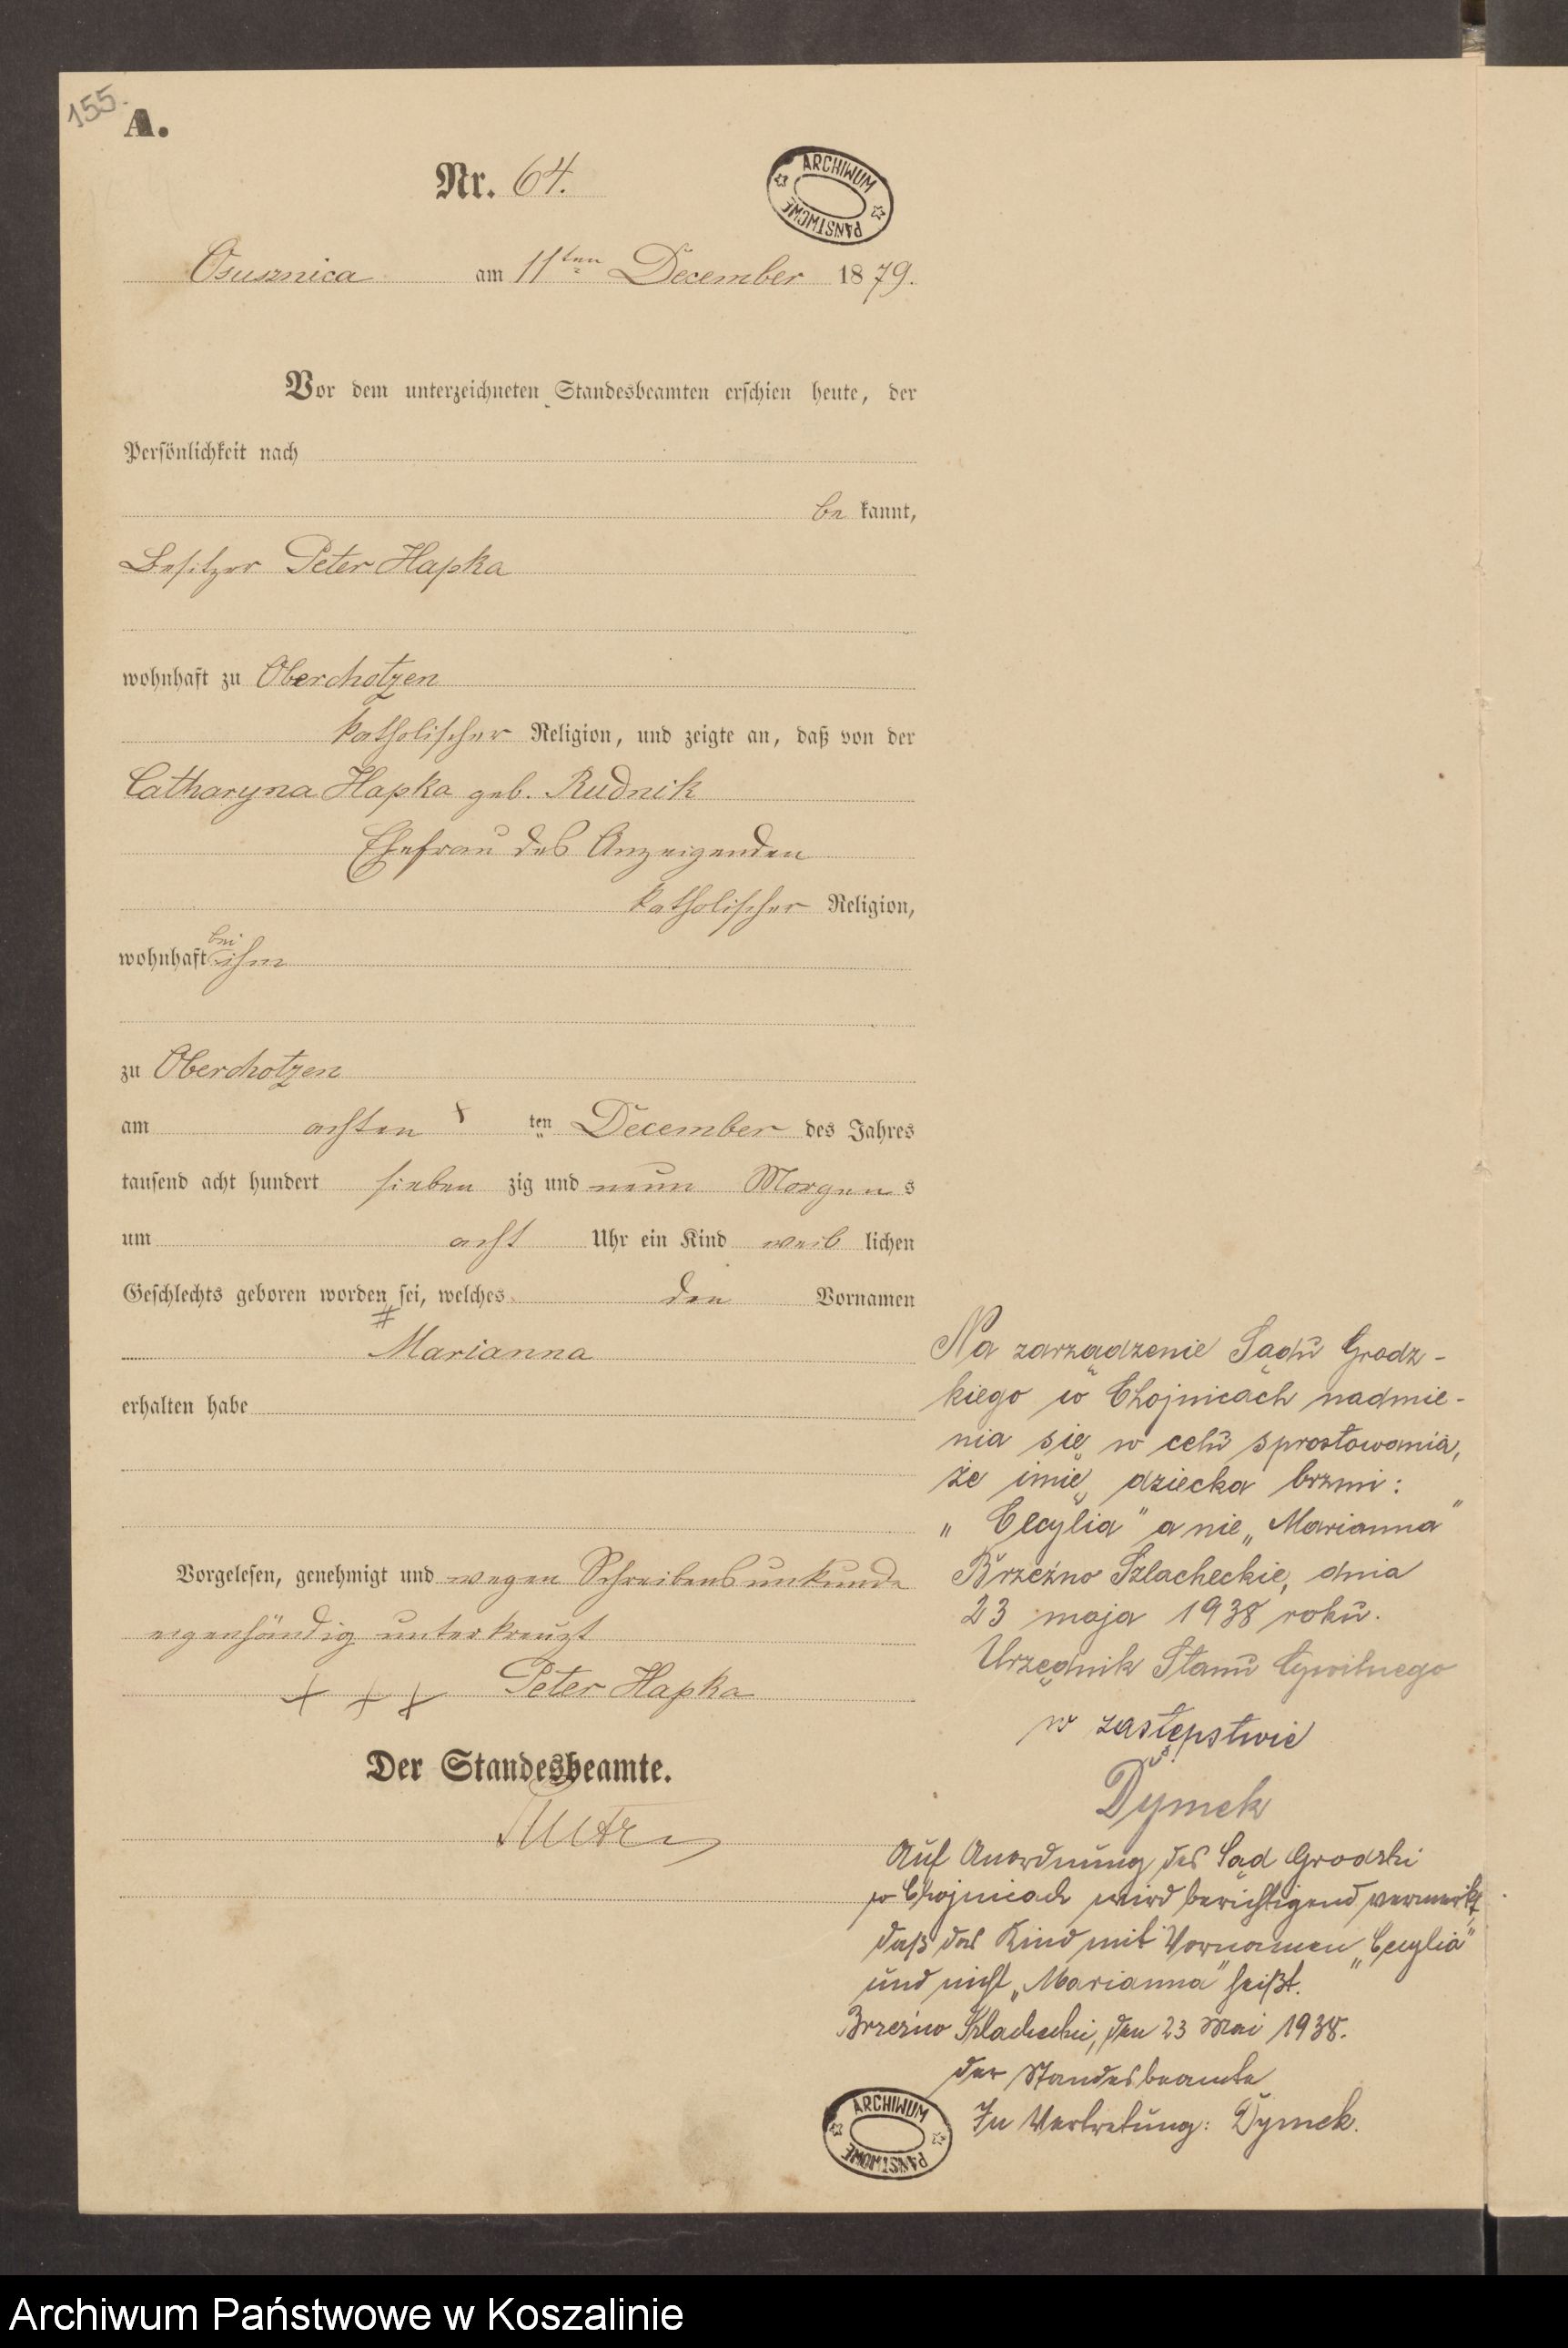 155.
A.
Nr. 64.
ARCHIWUM
PAŃSTWOWE
Osusznica am 11ten December 1879.
Vor dem unterzeichneten Standesbeamten erschien heute, der
Persönlichkeit nach
be kannt,
Besitzer Peter Hapka
wohnhaft zu Oberchotzen
katholischer Religion, und zeigte an, daß von der
Catharyna Hapka geb. Rudnik
Ehefrau des Anzeigenden
katholischer Religion,
wohnhaft bei ihm
zu Oberchotzen
am achten ten December des Jahres
tausend acht hundert sieben zig und neun Morgens
um acht Uhr ein Kind weib lichen
Geschlechts geboren worden sei, welches den Vornamen
Marianna
erhalten habe
Vorgelesen, genehmigt und wegen Schreibensunkunde
eigenhändig unterkreuzt
+ + + Peter Hapka
Der Standesbeamte.
Na zarządzenie Sądu Grodz-
kiego w Chojnicach nadmie-
nia się w celu sprostowania,
że imię dziecka brzmi:
„Cecylia" a nie „Marianna"
Brzeźno Szlacheckie, dnia
23 maja 1938 roku.
Urzędnik Stanu Cywilnego
w zastępstwie
Dymek
Auf Anordnung des Sąd Grodzki
w Chojnicach wird berichtigend vermerkt,
daß das Kind mit Vornamen „Cecylia"
und nicht „Marianna" heißt.
Brzeźno Szlacheckie, den 23 Mai 1938.
der Standesbeamte
In Vertretung: Dymek.
ARCHIWUM
PAŃSTWOWE
Archiwum Państwowe w Koszalinie